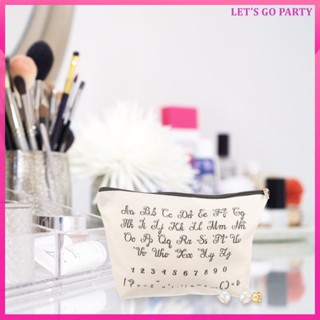 LET'S GO PARTY
Aa Bb Cc Dd Ee Ff Gg
Hh Ii Jj Kk Ll Mm Nn
Oo Pp Qq Rr Ss Tt Uu
Vv Ww Xx Yy Zz
1 2 3 4 5 6 7 8 9 0